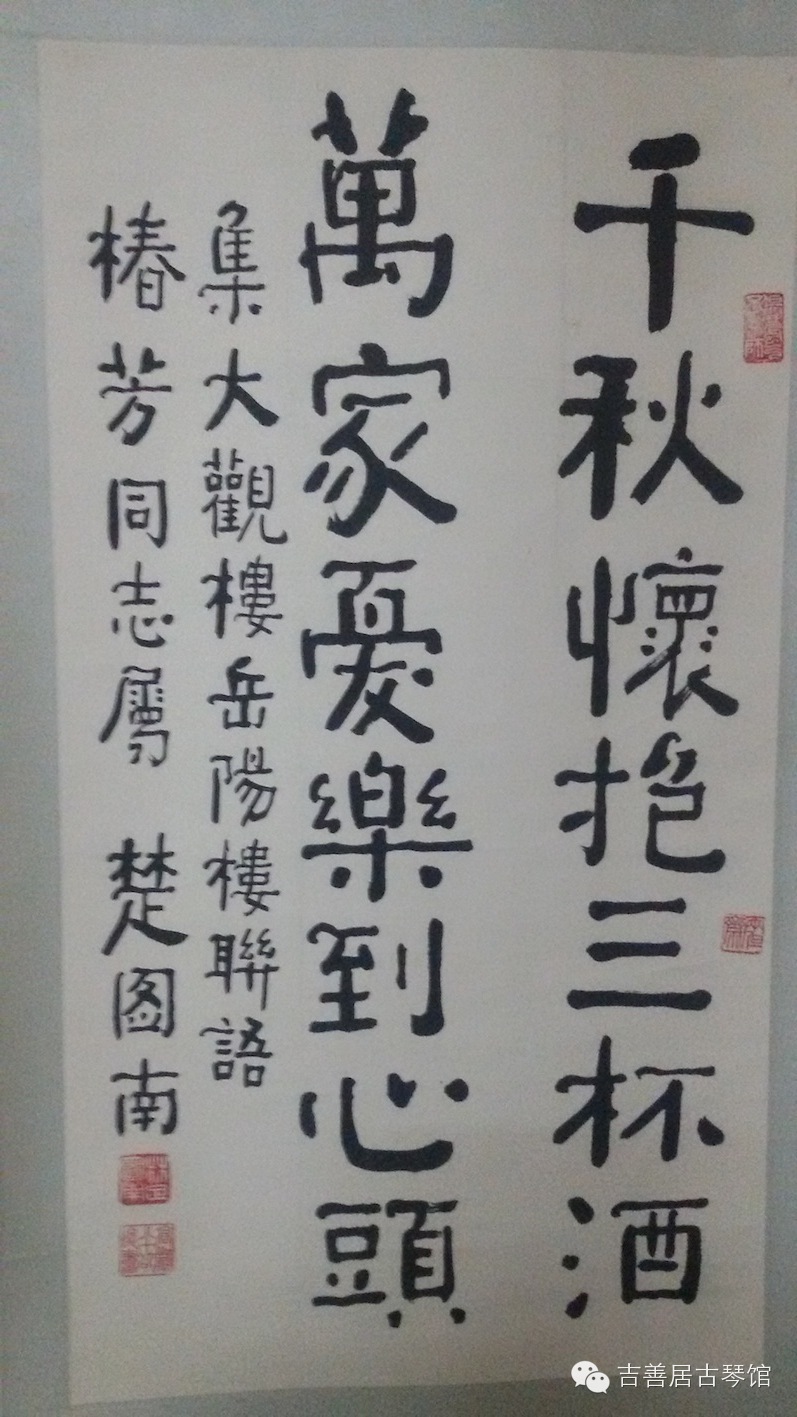 千秋懷抱三杯酒
萬家憂樂到心頭
集大觀樓岳陽樓聯語
椿芳同志属 楚图南
吉善居古琴馆